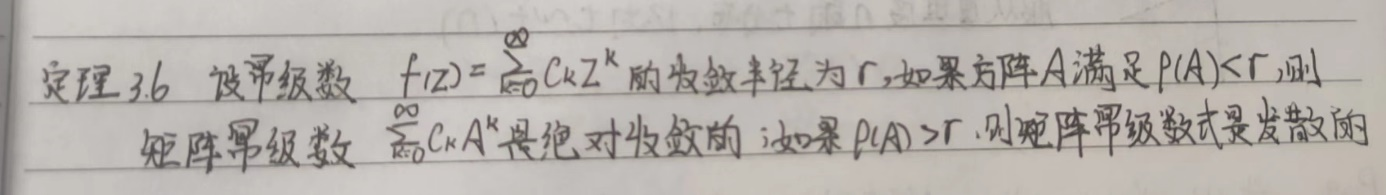 定理3.6 设幂级数 f(z)=∑_{k=0}^{∞} C_k Z^k 的收敛半径为r,如果方阵A满足ρ(A)<r,则
矩阵幂级数 ∑_{k=0}^{∞} C_k A^k 是绝对收敛的;如果ρ(A)>r.则矩阵幂级数式是发散的